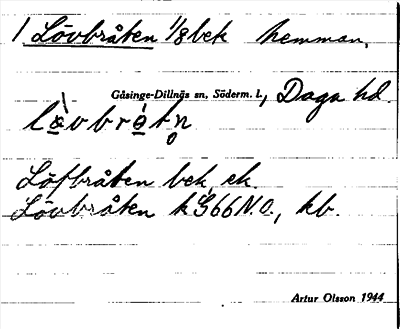 1 Lövbråten 1/8 bek hemman,
Gåsinge-Dillnäs sn, Söderm. l., Daga hd
lə̀vbrátn̥
Löfbråten bek, ek.
Lövbråten k G66 N.O., kb.
Artur Olsson 1944